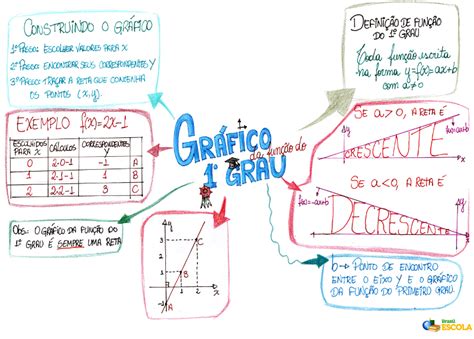 CONSTRUINDO O GRÁFICO
1º PASSO: ESCOLHER VALORES PARA X
2º PASSO: ENCONTRAR SEUS CORRESPONDENTES Y
3º PASSO: TRAÇAR A RETA QUE CONTENHA
OS PONTOS (X,Y).
DEFINIÇÃO DE FUNÇÃO
DO 1º GRAU
Toda função escrita
na forma y=f(x)=ax+b
com a≠0
EXEMPLO f(x)=2x-1
ESCOLHIDOS PARA X
CÁLCULOS
CORRESPONDENTES Y
0 2·0-1 -1 A
1 2·1-1 1 B
2 2·2-1 3 C
GRÁFICO
da função do
1º GRAU
SE a>0, A RETA É
y
f(x)=ax+b
CRESCENTE
x
SE a<0, A RETA É
y
f(x)=-ax+b
DECRESCENTE
x
Obs.: O GRÁFICO DA FUNÇÃO DO
1º GRAU É SEMPRE UMA RETA
y
3
C
1
B
1 2 x
-1
A
b→ PONTO DE ENCONTRO
ENTRE O EIXO Y E O GRÁFICO
DA FUNÇÃO DO PRIMEIRO GRAU.
Brasil
ESCOLA